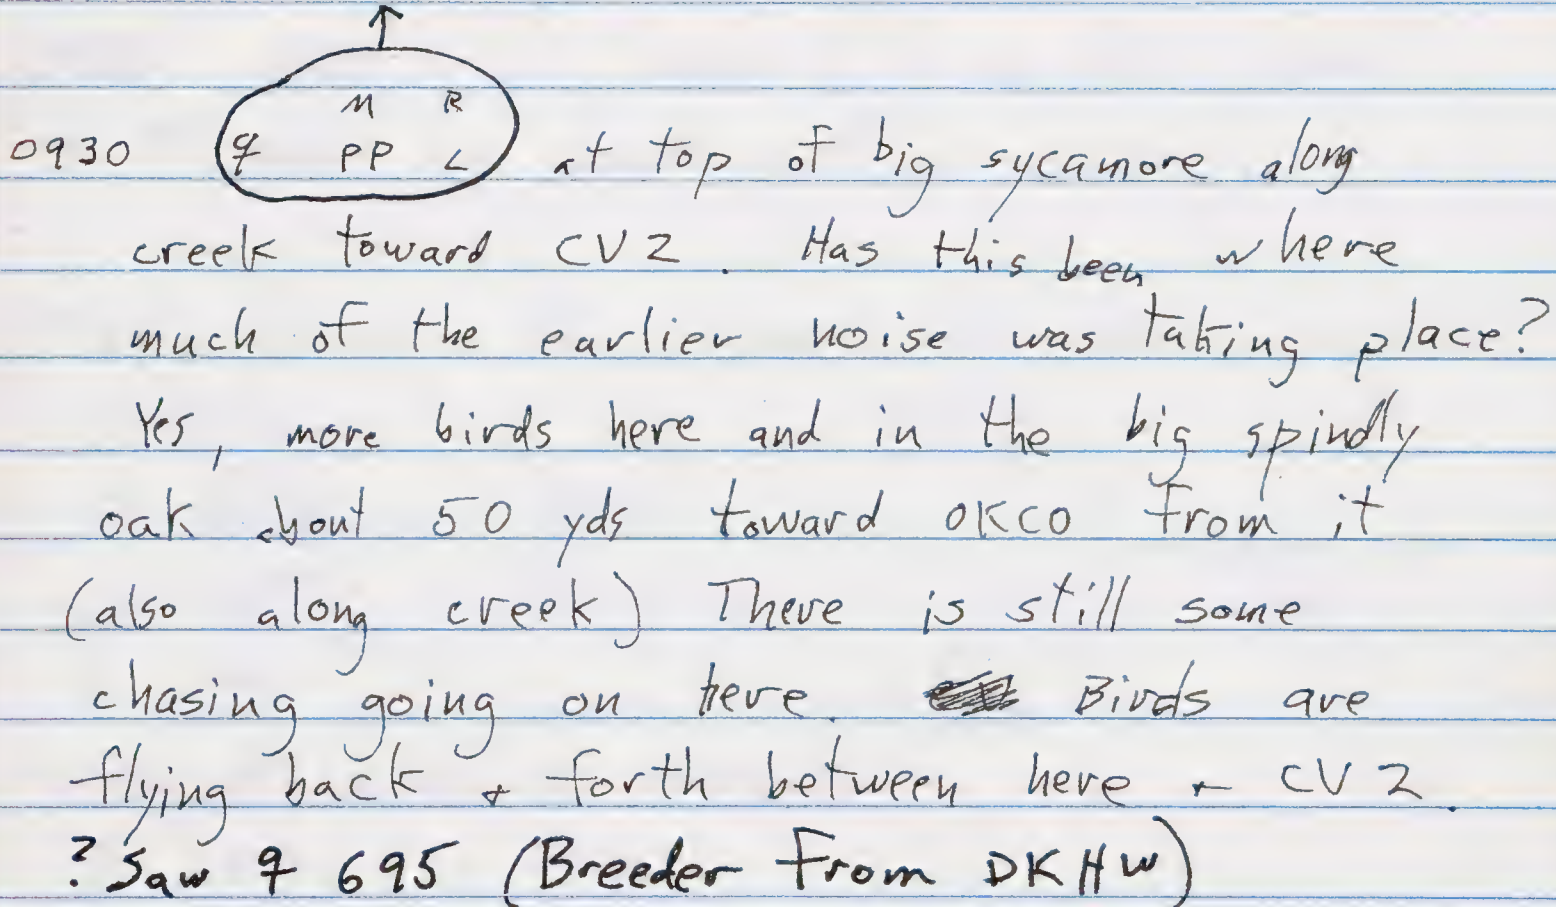 M R
0930 ♀ PP L at top of big sycamore along
creek toward CV2. Has this been where
much of the earlier noise was taking place?
Yes, more birds here and in the big spindly
oak about 50 yds toward OKCO from it
(also along creek) There is still some
chasing going on here. Birds are
flying back + forth between here + CV2.
? Saw ♀ 695 (Breeder from DKHW)